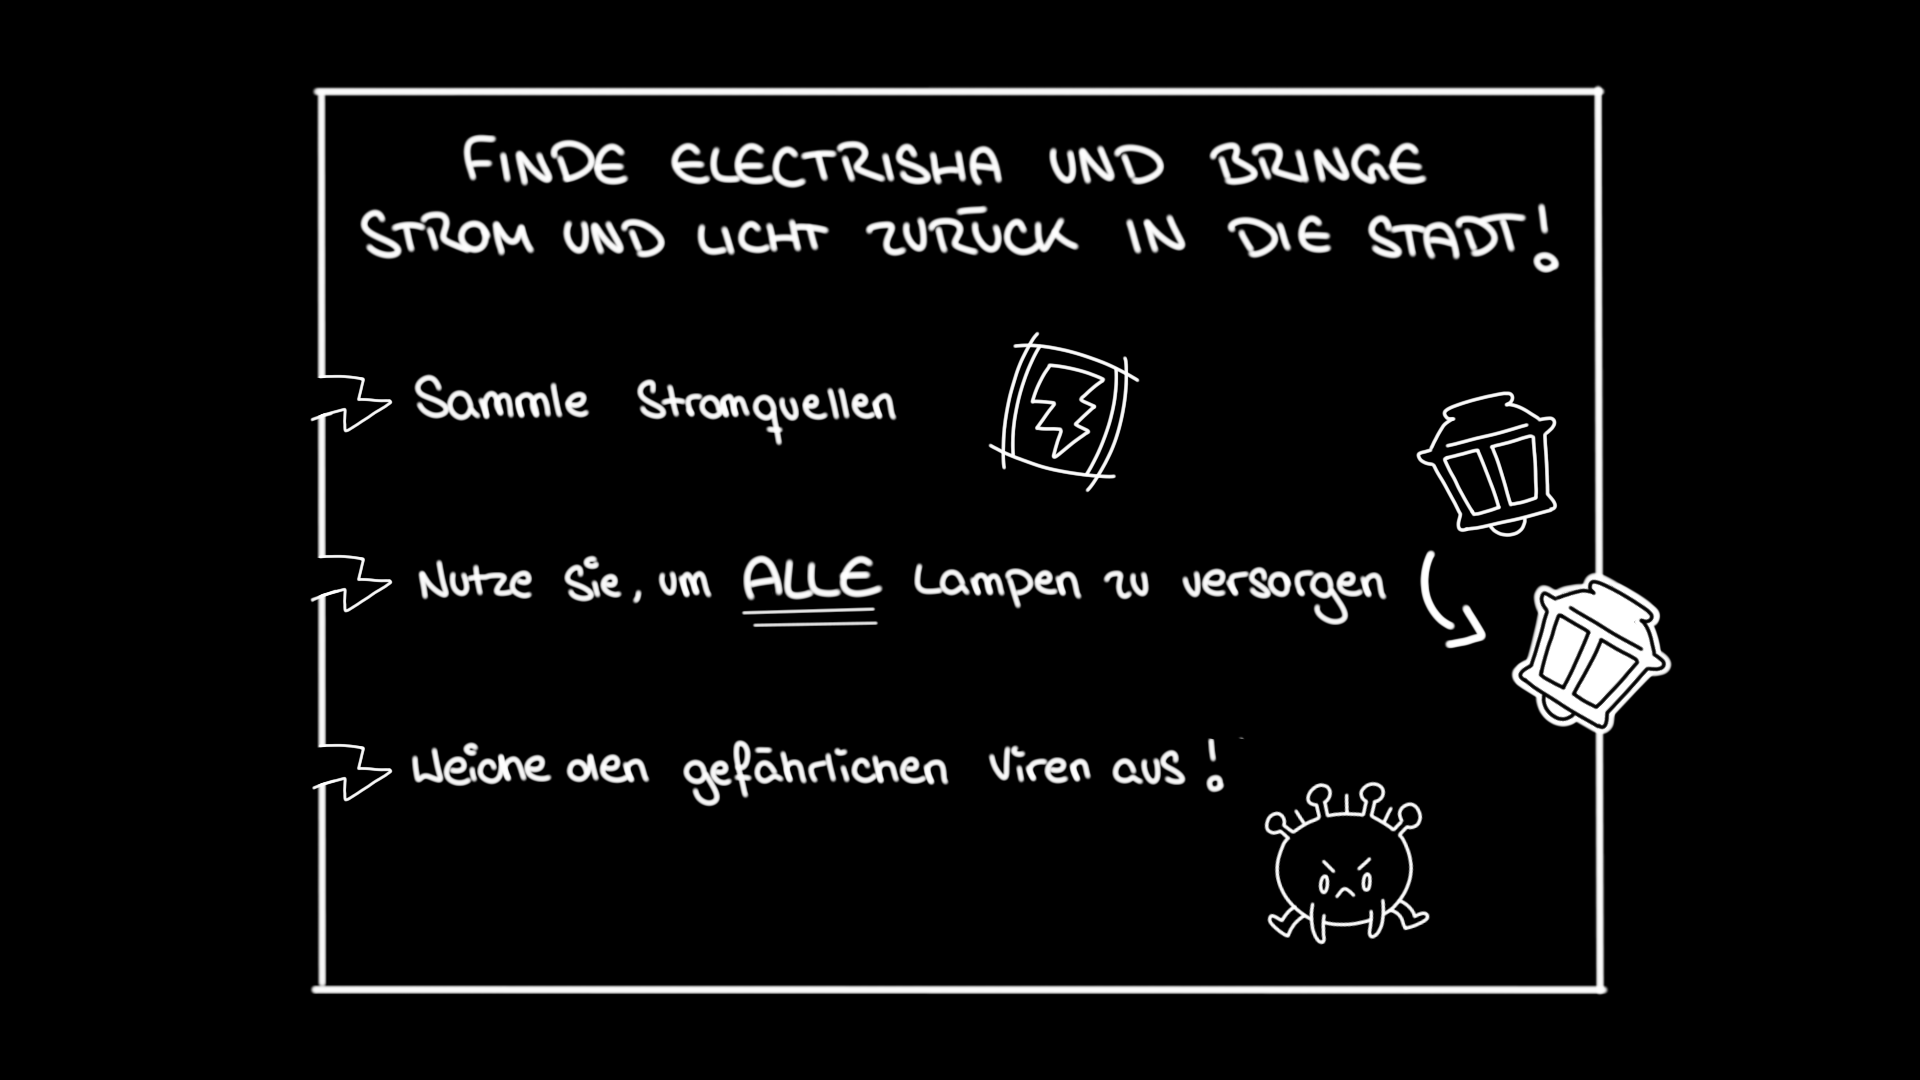 FINDE ELECTRISHA UND BRINGE
STROM UND LICHT ZURÜCK IN DIE STADT!
Sammle Stromquellen
Nutze Sie, um ALLE Lampen zu versorgen
Weiche den gefährlichen Viren aus!